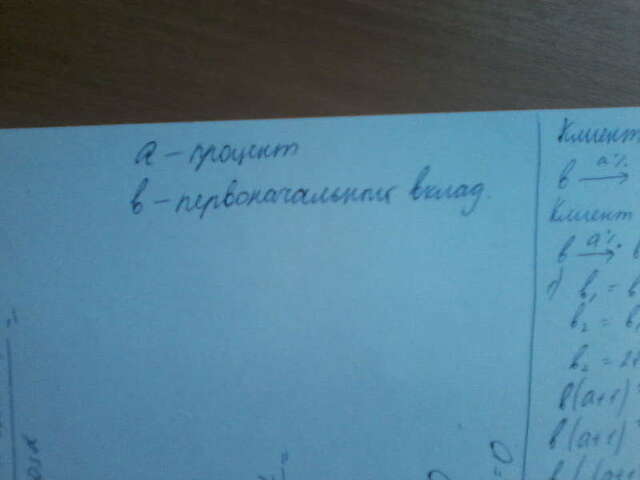 а – процент
в – первоначальный вклад.
Клиент
в a%→
Клиент
в a%→ в
1) в₁ = в
в₂ = в
в₂ =
в(а+1)
в(а+1)
=0